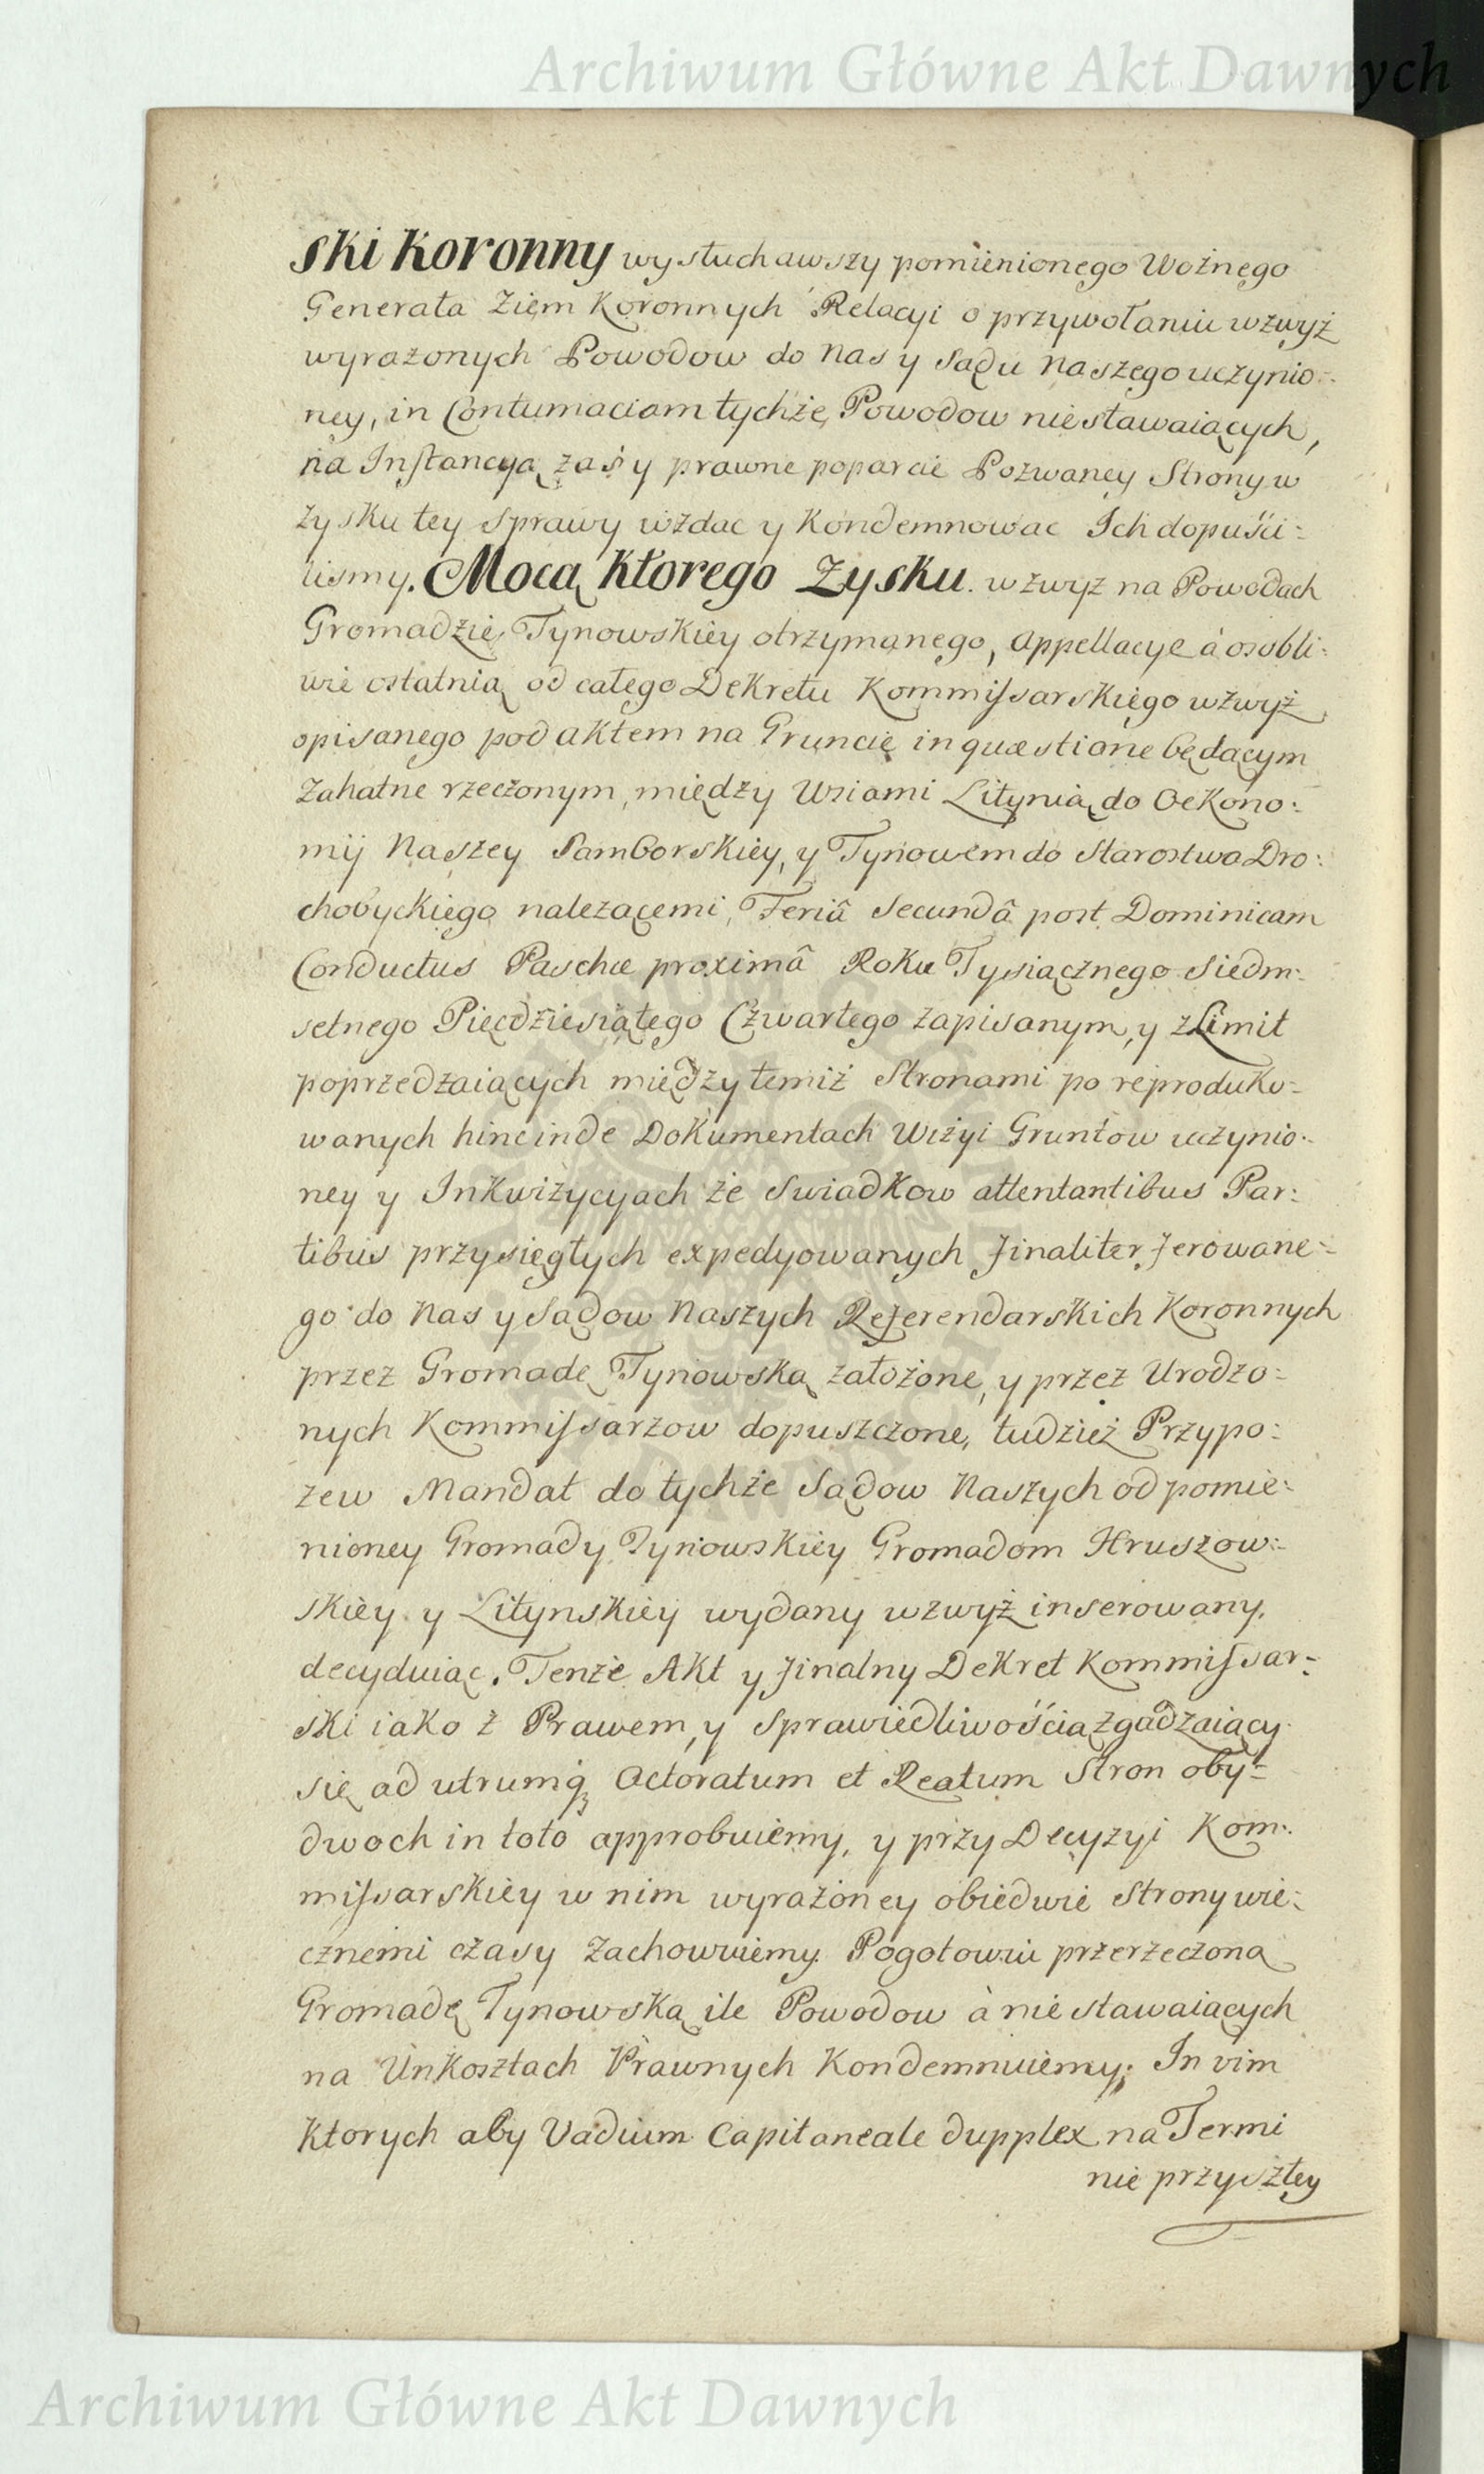 Archiwum Główne Akt Dawnych
ski Koronny wysłuchawszy pomienionego Woźnego
Generała Ziem Koronnych Relacyi o przywołaniu wzwyż
wyrażonych Powodow do Nas y Sądu Naszego uczynio=
ney, in Contumaciam tychże Powodow niestawaiących,
na Instancyą zaś y prawne poparcie Pozwaney Strony w
zysku tey Sprawy wzdac y Kondemnowac Ich dopuści=
lismy. Mocą Ktorego Zysku wzwyż na Powodach
Gromadzie Tynowskiey otrzymanego, Appellacye à osobli=
wie ostatnią od całego Dekretu Kommissarskiego wzwyż
opisanego pod aktem na Gruncie in quæstione będącym
Zahatne rzeczonym, między Wsiami Litynią do Oekono=
mij Naszey Samborskiey, y Tynowem do Starostwa Dro=
chobyckiego należącemi, Feriâ Secundâ post Dominicam
Conductus Paschæ proximâ Roku Tysiącznego Siedm=
setnego Pięcdziesiątego Czwartego zapisanym, y z Limit
poprzedzaiących między temiż Stronami po reproduko=
wanych hinc inde Dokumentach Wizyi Gruntow uczynio=
ney y Inkwizycyach ze Swiadkow attentantibus Par=
tibus przysięgłych expedyowanych finaliter ferowane=
go do Nas y Sądow Naszych Referendarskich Koronnych
przez Gromadę Tynowską założone, y przez Urodzo=
nych Kommissarzow dopuszczone, tudzież Przypo=
zew Mandat do tychże Sądow Naszych od pomie=
nioney Gromady Tynowskiey Gromadom Hruszow=
skiey y Litynskiey wydany wzwyż inserowany,
decyduiąc. Tenże Akt y finalny Dekret Kommissar=
ski iako z Prawem, y Sprawiedliwością zgadzaiący
się ad utrumq3 Actoratum et Reatum Stron oby=
dwoch in toto approbuiemy, y przy Decyzyi Kom=
missarskiey w nim wyrażoney obiedwie Strony wie=
cznemi czasy zachowuiemy. Pogotowiu przerzeczoną
Gromadę Tynowską ile Powodow à nie stawaiących
na Unkosztach Prawnych Kondemnuiemy; In vim
Ktorych aby Vadium Capitaneale dupplex na Termi
nie przyszłey
Archiwum Główne Akt Dawnych